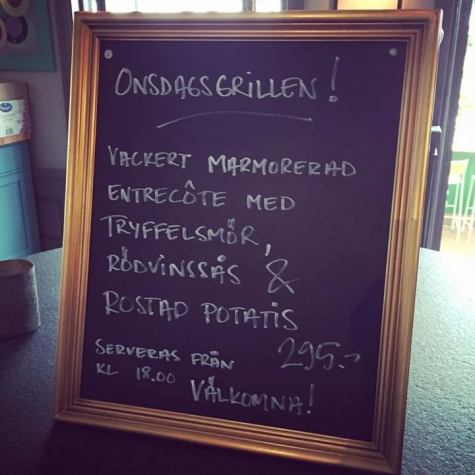 ONSDAGSGRILLEN!
VACKERT MARMORERAD
ENTRECÔTE MED
TRYFFELSMÖR,
RÖDVINSSÅS &
ROSTAD POTATIS
SERVERAS FRÅN 295.-
KL 18.00 VÄLKOMNA!